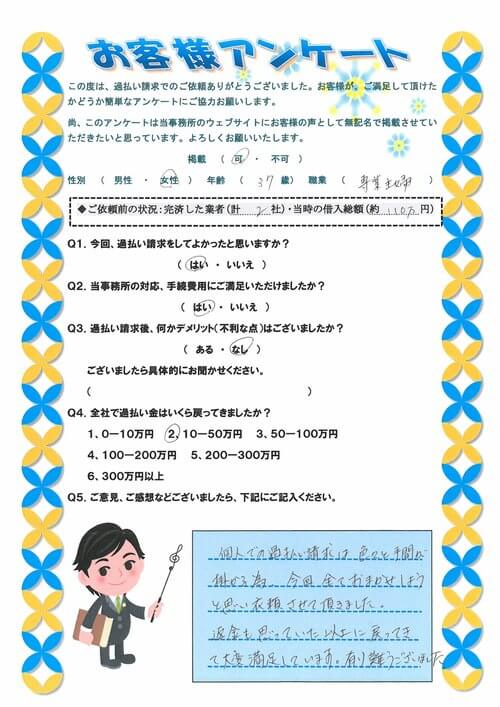 お客様アンケート
この度は、過払い請求でのご依頼ありがとうございました。お客様が、ご満足して頂けた
かどうか簡単なアンケートにご協力お願いします。
尚、このアンケートは当事務所のウェブサイトにお客様の声として無記名で掲載させてい
ただきたいと思っています。よろしくお願いいたします。
掲載 ( 可 ・ 不可 )
性別 ( 男性 ・ 女性 ) 年齢 ( 37 歳) 職業 ( 専業主婦 )
◆ご依頼前の状況:完済した業者(計 2 社)・当時の借入総額(約 110万 円)
Q1. 今回、過払い請求をしてよかったと思いますか?
( はい ・ いいえ )
Q2. 当事務所の対応、手続費用にご満足いただけましたか?
( はい ・ いいえ )
Q3. 過払い請求後、何かデメリット(不利な点)はございましたか?
( ある ・ なし )
ございましたら具体的にお聞かせください。
( )
Q4. 全社で過払い金はいくら戻ってきましたか?
1、0-10万円 2、10-50万円 3、50-100万円
4、100-200万円 5、200-300万円
6、300万円以上
Q5. ご意見、ご感想などございましたら、下記にご記入ください。
個人での過払い請求は、色々と手間が
掛かる為、今回全ておまかせしよう
と思い依頼させて頂きました。
返金も思っていた以上に戻ってき
て大変満足しています。有り難うございました